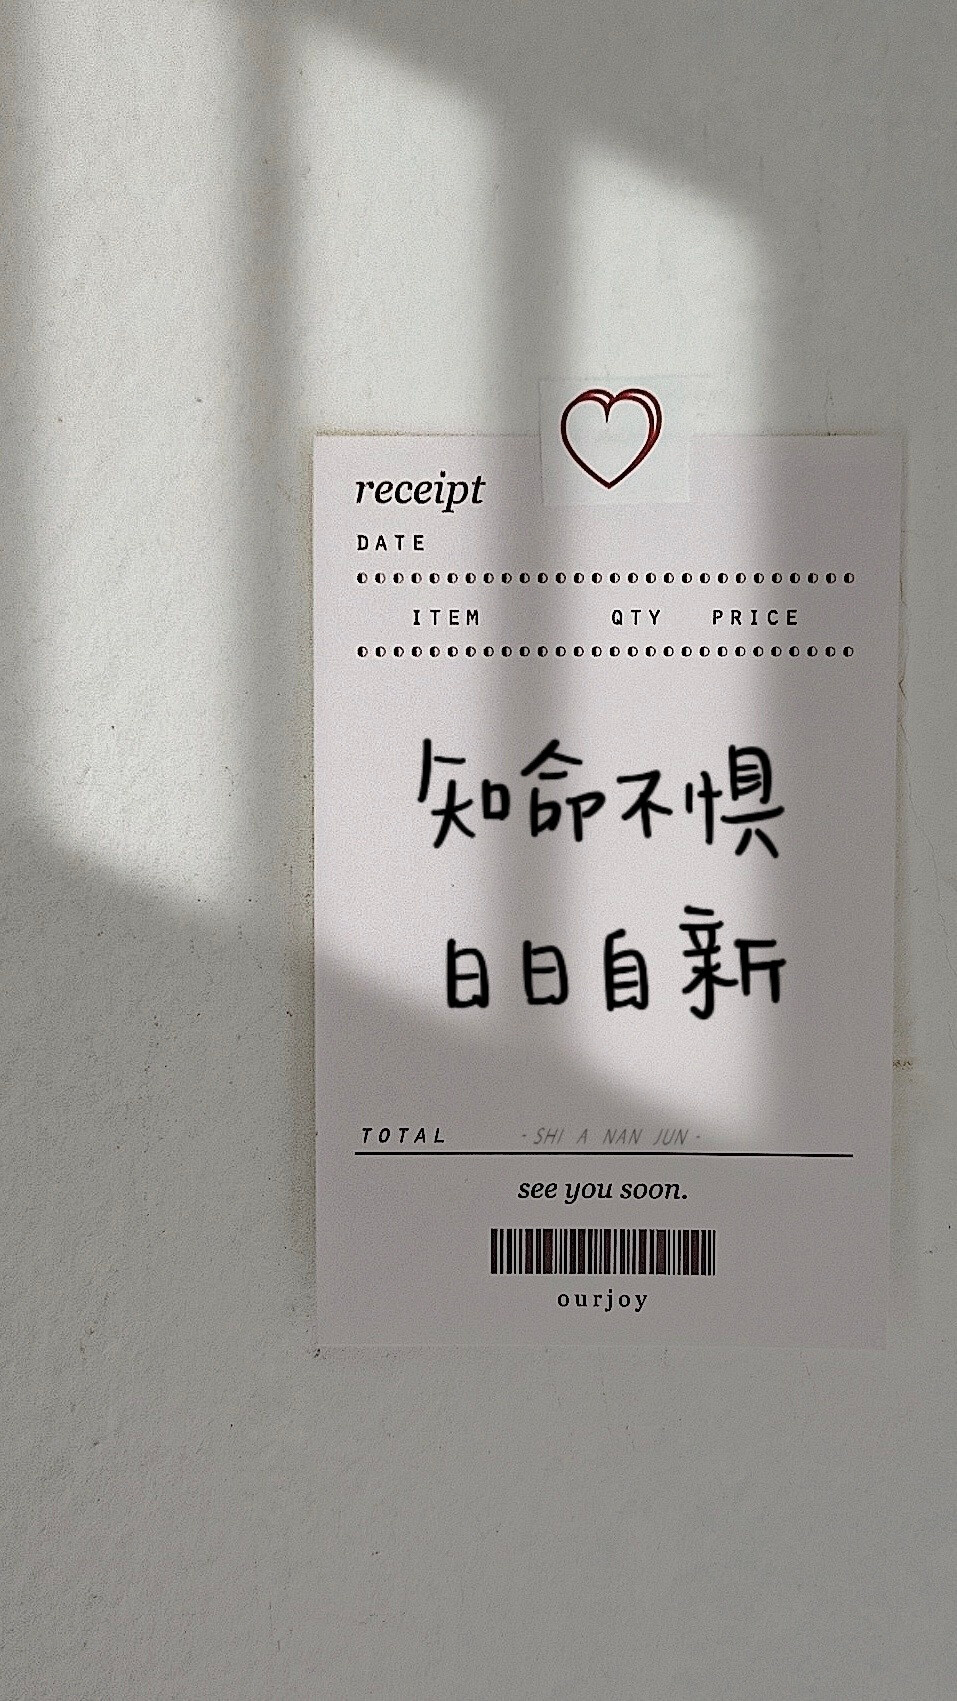 receipt
DATE
ITEM QTY PRICE
知命不惧
日日自新
TOTAL - SHI A NAN JUN -
see you soon.
ourjoy